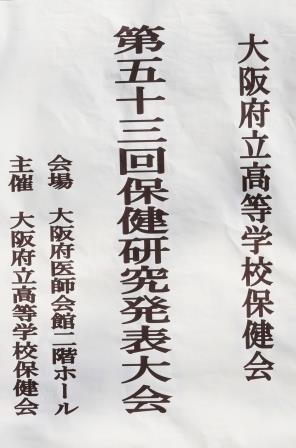 大阪府立高等学校保健会
第五十三回保健研究発表大会
会場 大阪府医師会館二階ホール
主催 大阪府立高等学校保健会